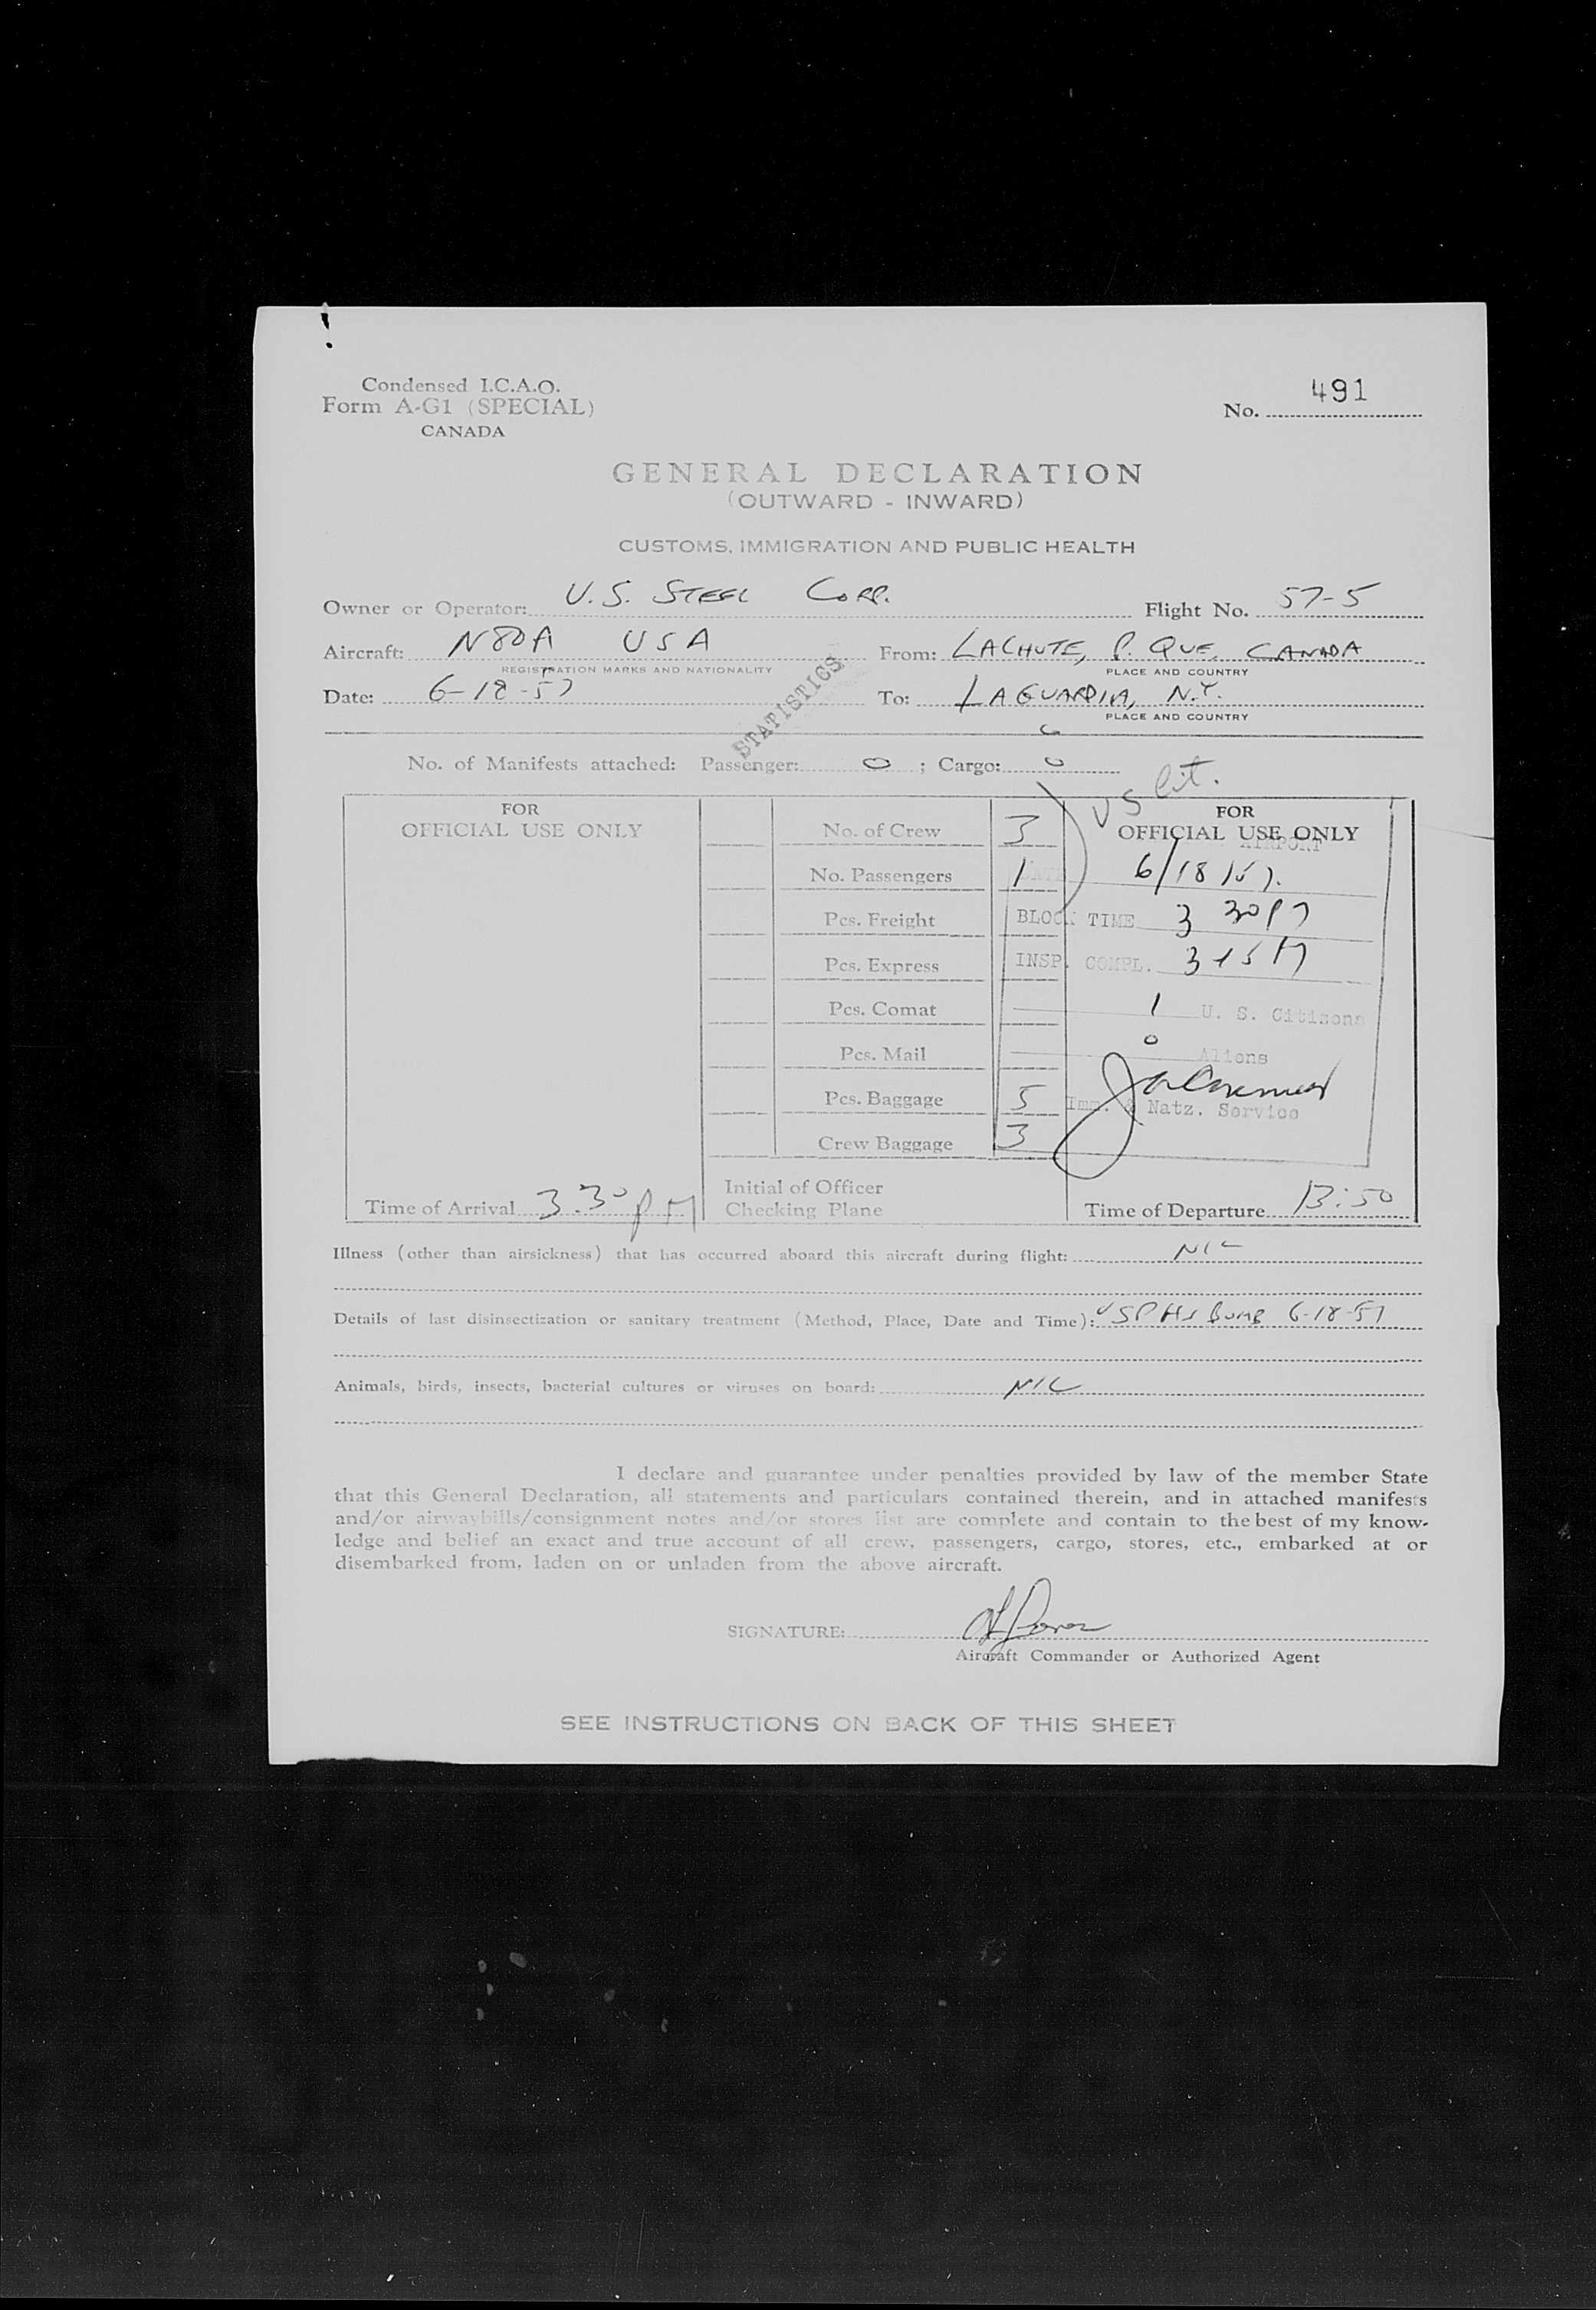 Condensed I.C.A.O.
Form A-G1 (SPECIAL)
CANADA
No. 491
GENERAL DECLARATION
(OUTWARD - INWARD)
CUSTOMS, IMMIGRATION AND PUBLIC HEALTH
Owner or Operator: U.S. STEEL CORP. Flight No. 57-5
Aircraft: N80A USA From: LACHUTE, P. QUE. CANADA
REGISTRATION MARKS AND NATIONALITY PLACE AND COUNTRY
Date: 6-18-57 To: LAGUARDIA, N.Y.
PLACE AND COUNTRY
STATISTICS
No. of Manifests attached: Passenger: 0 ; Cargo: 0
US Cit.
FOR
OFFICIAL USE ONLY
No. of Crew 3
No. Passengers 1
Pcs. Freight
Pcs. Express
Pcs. Comat
Pcs. Mail
Pcs. Baggage 5
Crew Baggage 3
FOR
OFFICIAL USE ONLY
AIRPORT
DATE 6/18/57.
BLOCK TIME 3 30 P
INSP. COMPL.
1 U. S. Citizens
0 Aliens
Imm. & Natz. Service
Time of Arrival 3.30 PM
Initial of Officer
Checking Plane
Time of Departure 13:50
Illness (other than airsickness) that has occurred aboard this aircraft during flight: NIL
Details of last disinsectization or sanitary treatment (Method, Place, Date and Time): USPHS BOMB 6-18-57
Animals, birds, insects, bacterial cultures or viruses on board: NIL
I declare and guarantee under penalties provided by law of the member State
that this General Declaration, all statements and particulars contained therein, and in attached manifests
and/or airwaybills/consignment notes and/or stores list are complete and contain to the best of my know-
ledge and belief an exact and true account of all crew, passengers, cargo, stores, etc., embarked at or
disembarked from, laden on or unladen from the above aircraft.
SIGNATURE:
Aircraft Commander or Authorized Agent
SEE INSTRUCTIONS ON BACK OF THIS SHEET